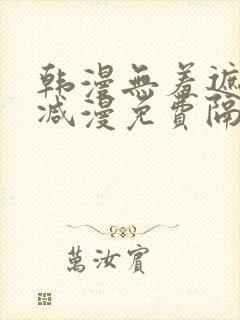 韩漫無羞遮
减漫免費隔
萬汝賓